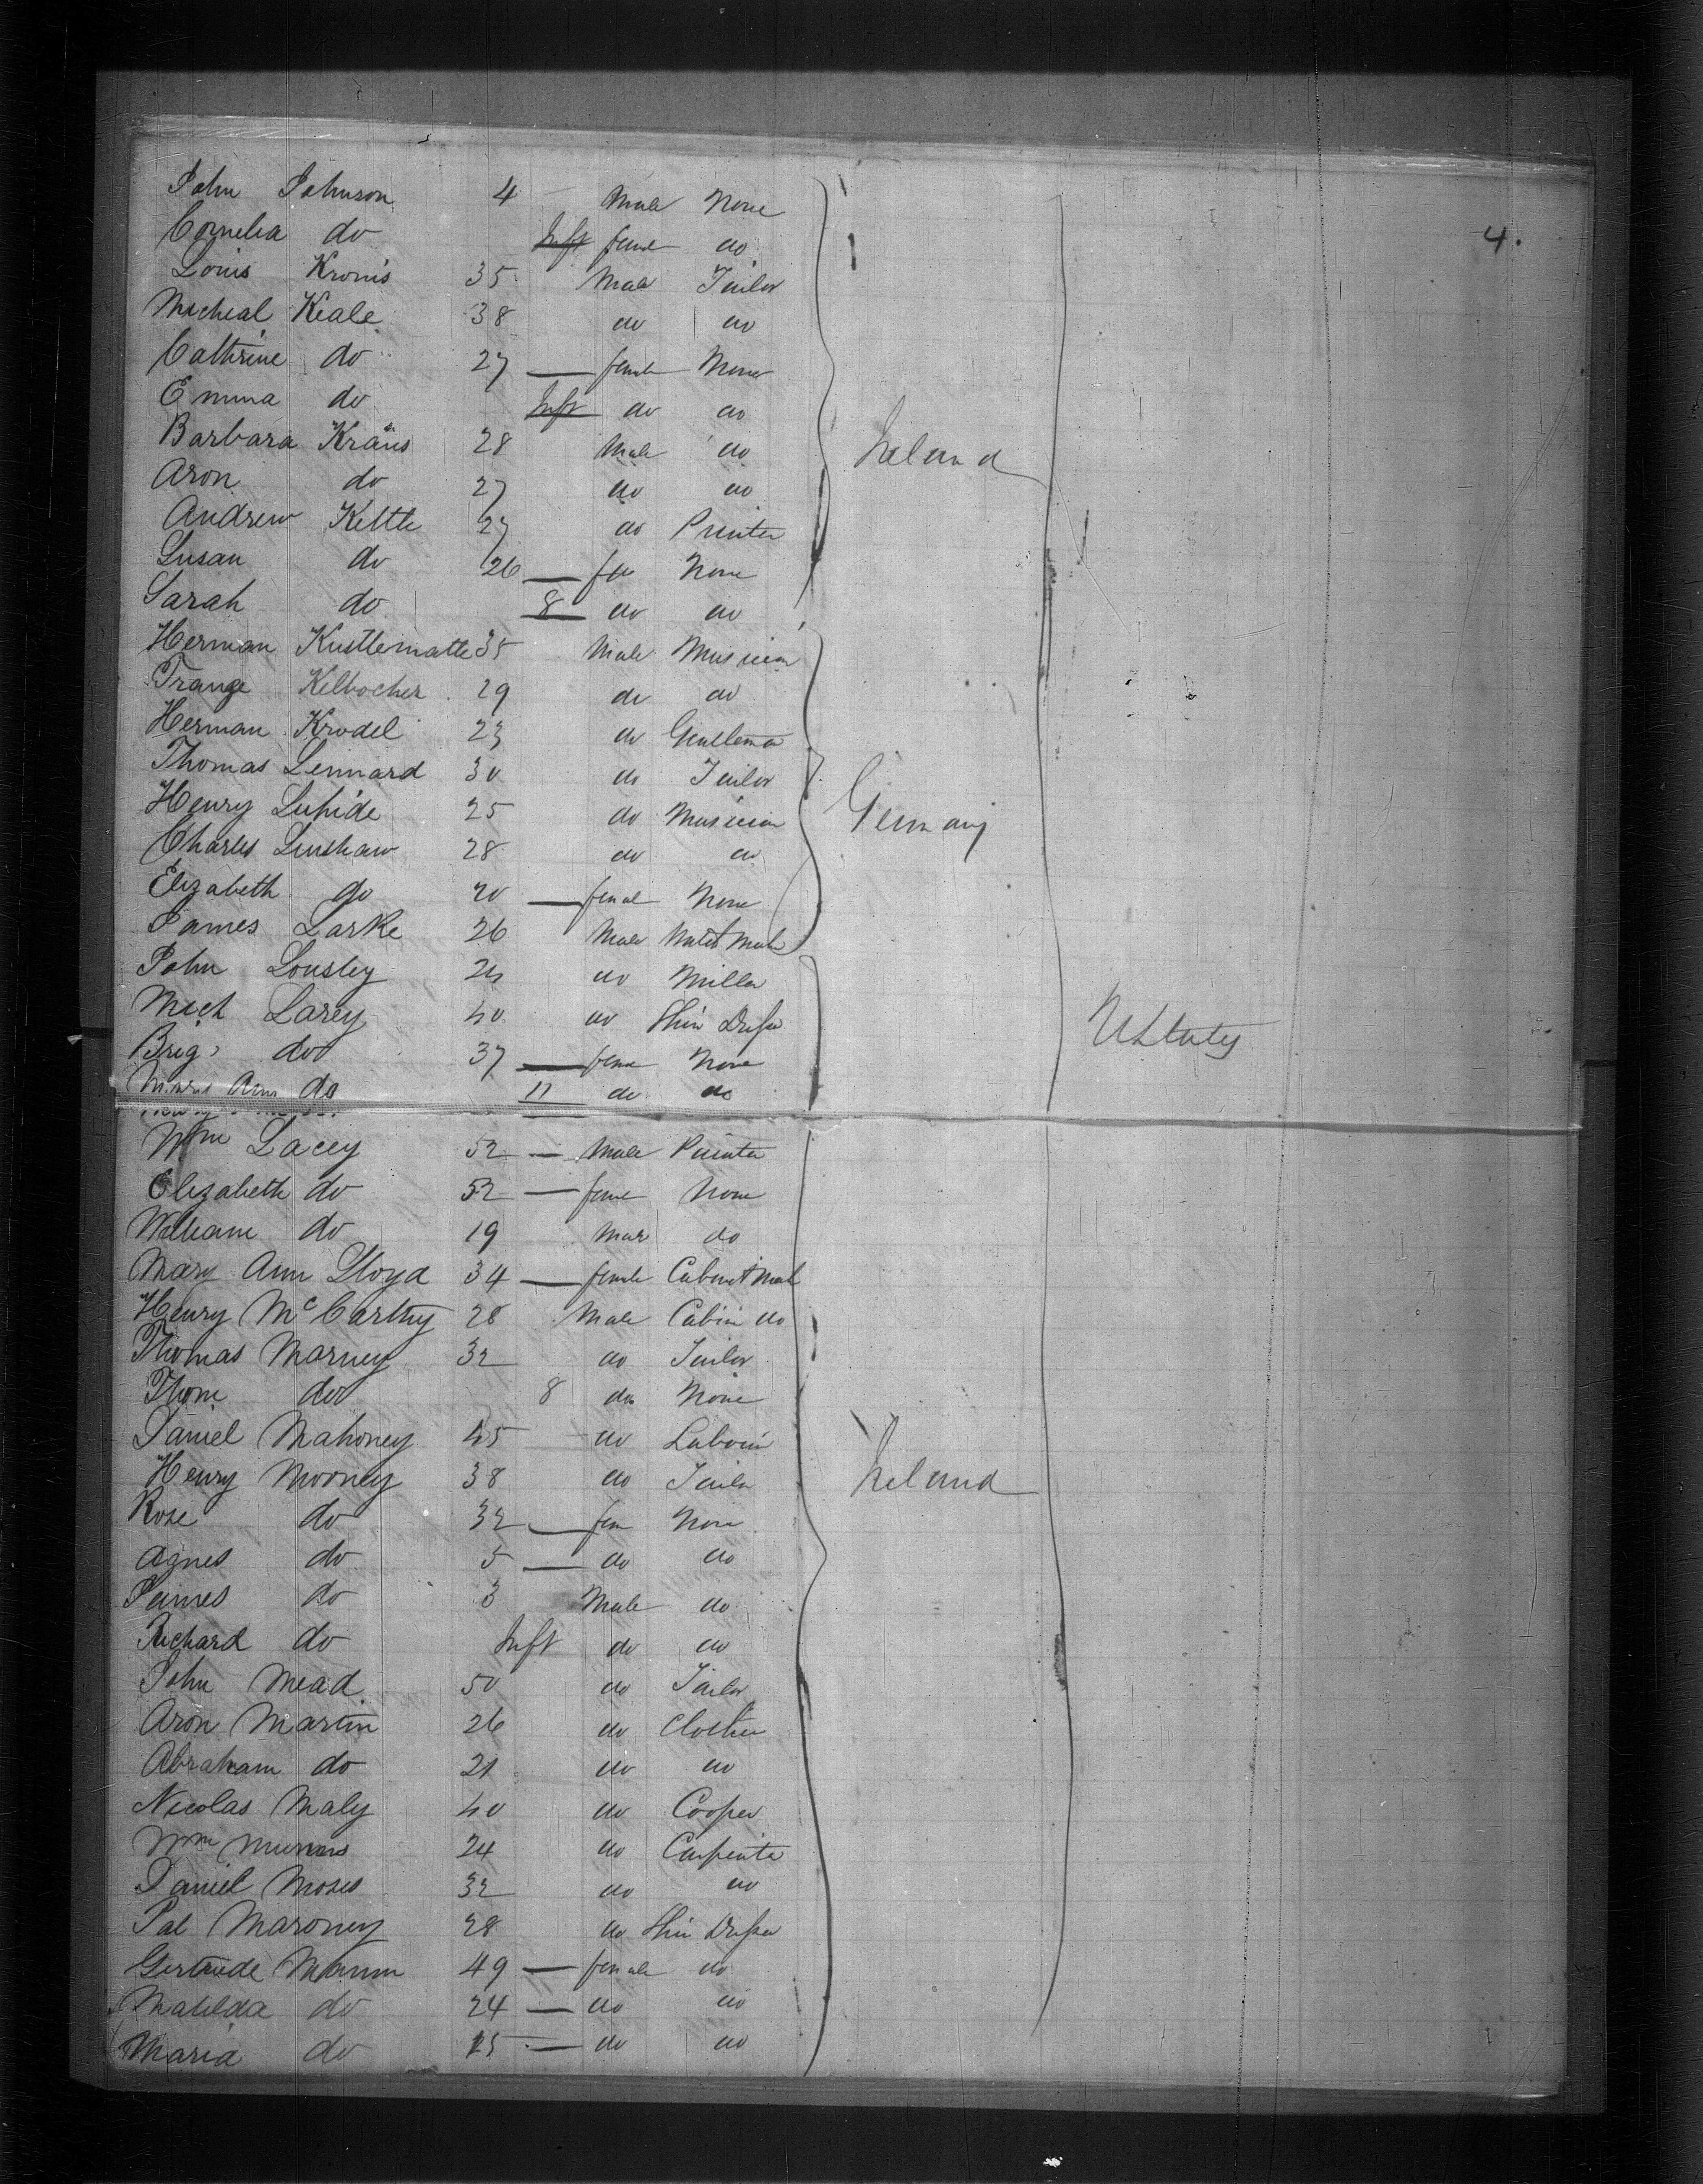 4.
John Johnson 4 Male None
Cornelia do Inft fem do
Louis Kronis 35 Male Tailor
Micheal Keale 38 do do
Cathrine do 27 female None
Emma do Inft do do
Barbara Kraus 28 Male do
Aron do 27 do do
Andrew Kettle 27 do Printer
Susan do 26 fe None
Sarah do 8 do do
Ireland
Herman Kustlematte 35 Male Musician
Trange Kelbocher 29 do do
Herman Krodel 23 do Gentleman
Thomas Lennard 30 do Tailor
Henry Luhide 25 do Musician
Charles Linshaw 28 do do
Elizabeth do 20 female None
James Larke 26 Male
Germany
John Lousley 24 do Miller
Mich Larey 40 do Skin Dresser
Brig do 37 fema None
Mary Ann do 11 do do
U States
Wm Lacey 52 Male Painter
Elizabeth do 52 feme None
William do 19 Mar do
Mary Ann Lloyd 34 female Cabinet Mak
Henry McCarthy 28 Male Cabin do
Thomas Marney 32 do Tailor
Thom do 8 do None
Daniel Mahoney 45 do Labour
Henry Mooney 38 do Tailor
Rose do 32 fem None
Agnes do 5 do do
James do 3 Male do
Richard do Inft do do
John Mead 50 do Tailor
Aron Martin 26 do Clothier
Abraham do 21 do do
Nicolas Maly 40 do Cooper
Wm 24 do Carpenter
Daniel Moses 32 do do
Pat Maroney 28 do Skin Dresser
Gertrude Mann 49 female do
Matilda do 24 do do
Maria do 15 do do
Ireland